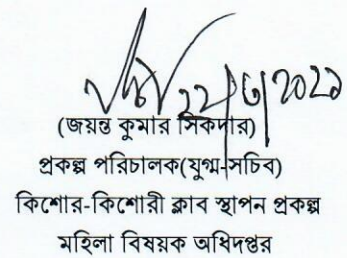 (জয়ন্ত কুমার সিকদার)
প্রকল্প পরিচালক(যুগ্ম-সচিব)
কিশোর-কিশোরী ক্লাব স্থাপন প্রকল্প
মহিলা বিষয়ক অধিদপ্তর